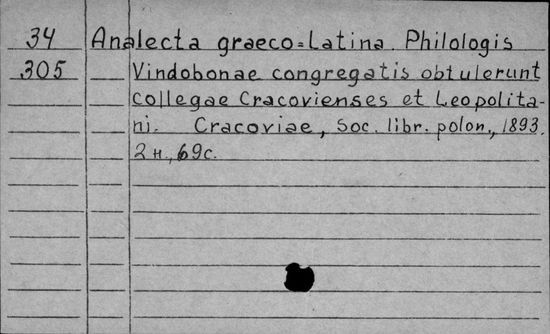 34 Analecta graeco=Latina. Philologis
305 Vindobonae congregatis obtulerunt
collegae Cracovienses et Leopolita-
ni. Cracoviae, Soc. libr. polon., 1893.
2 н., 69с.